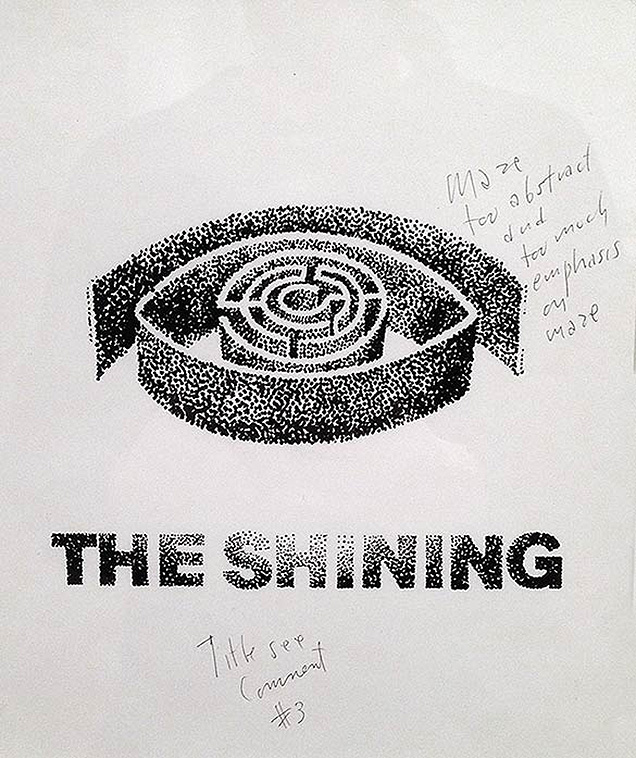 Maze
too abstract
and
too much
emphasis
on
maze
THE SHINING
Title see
Comment
#3